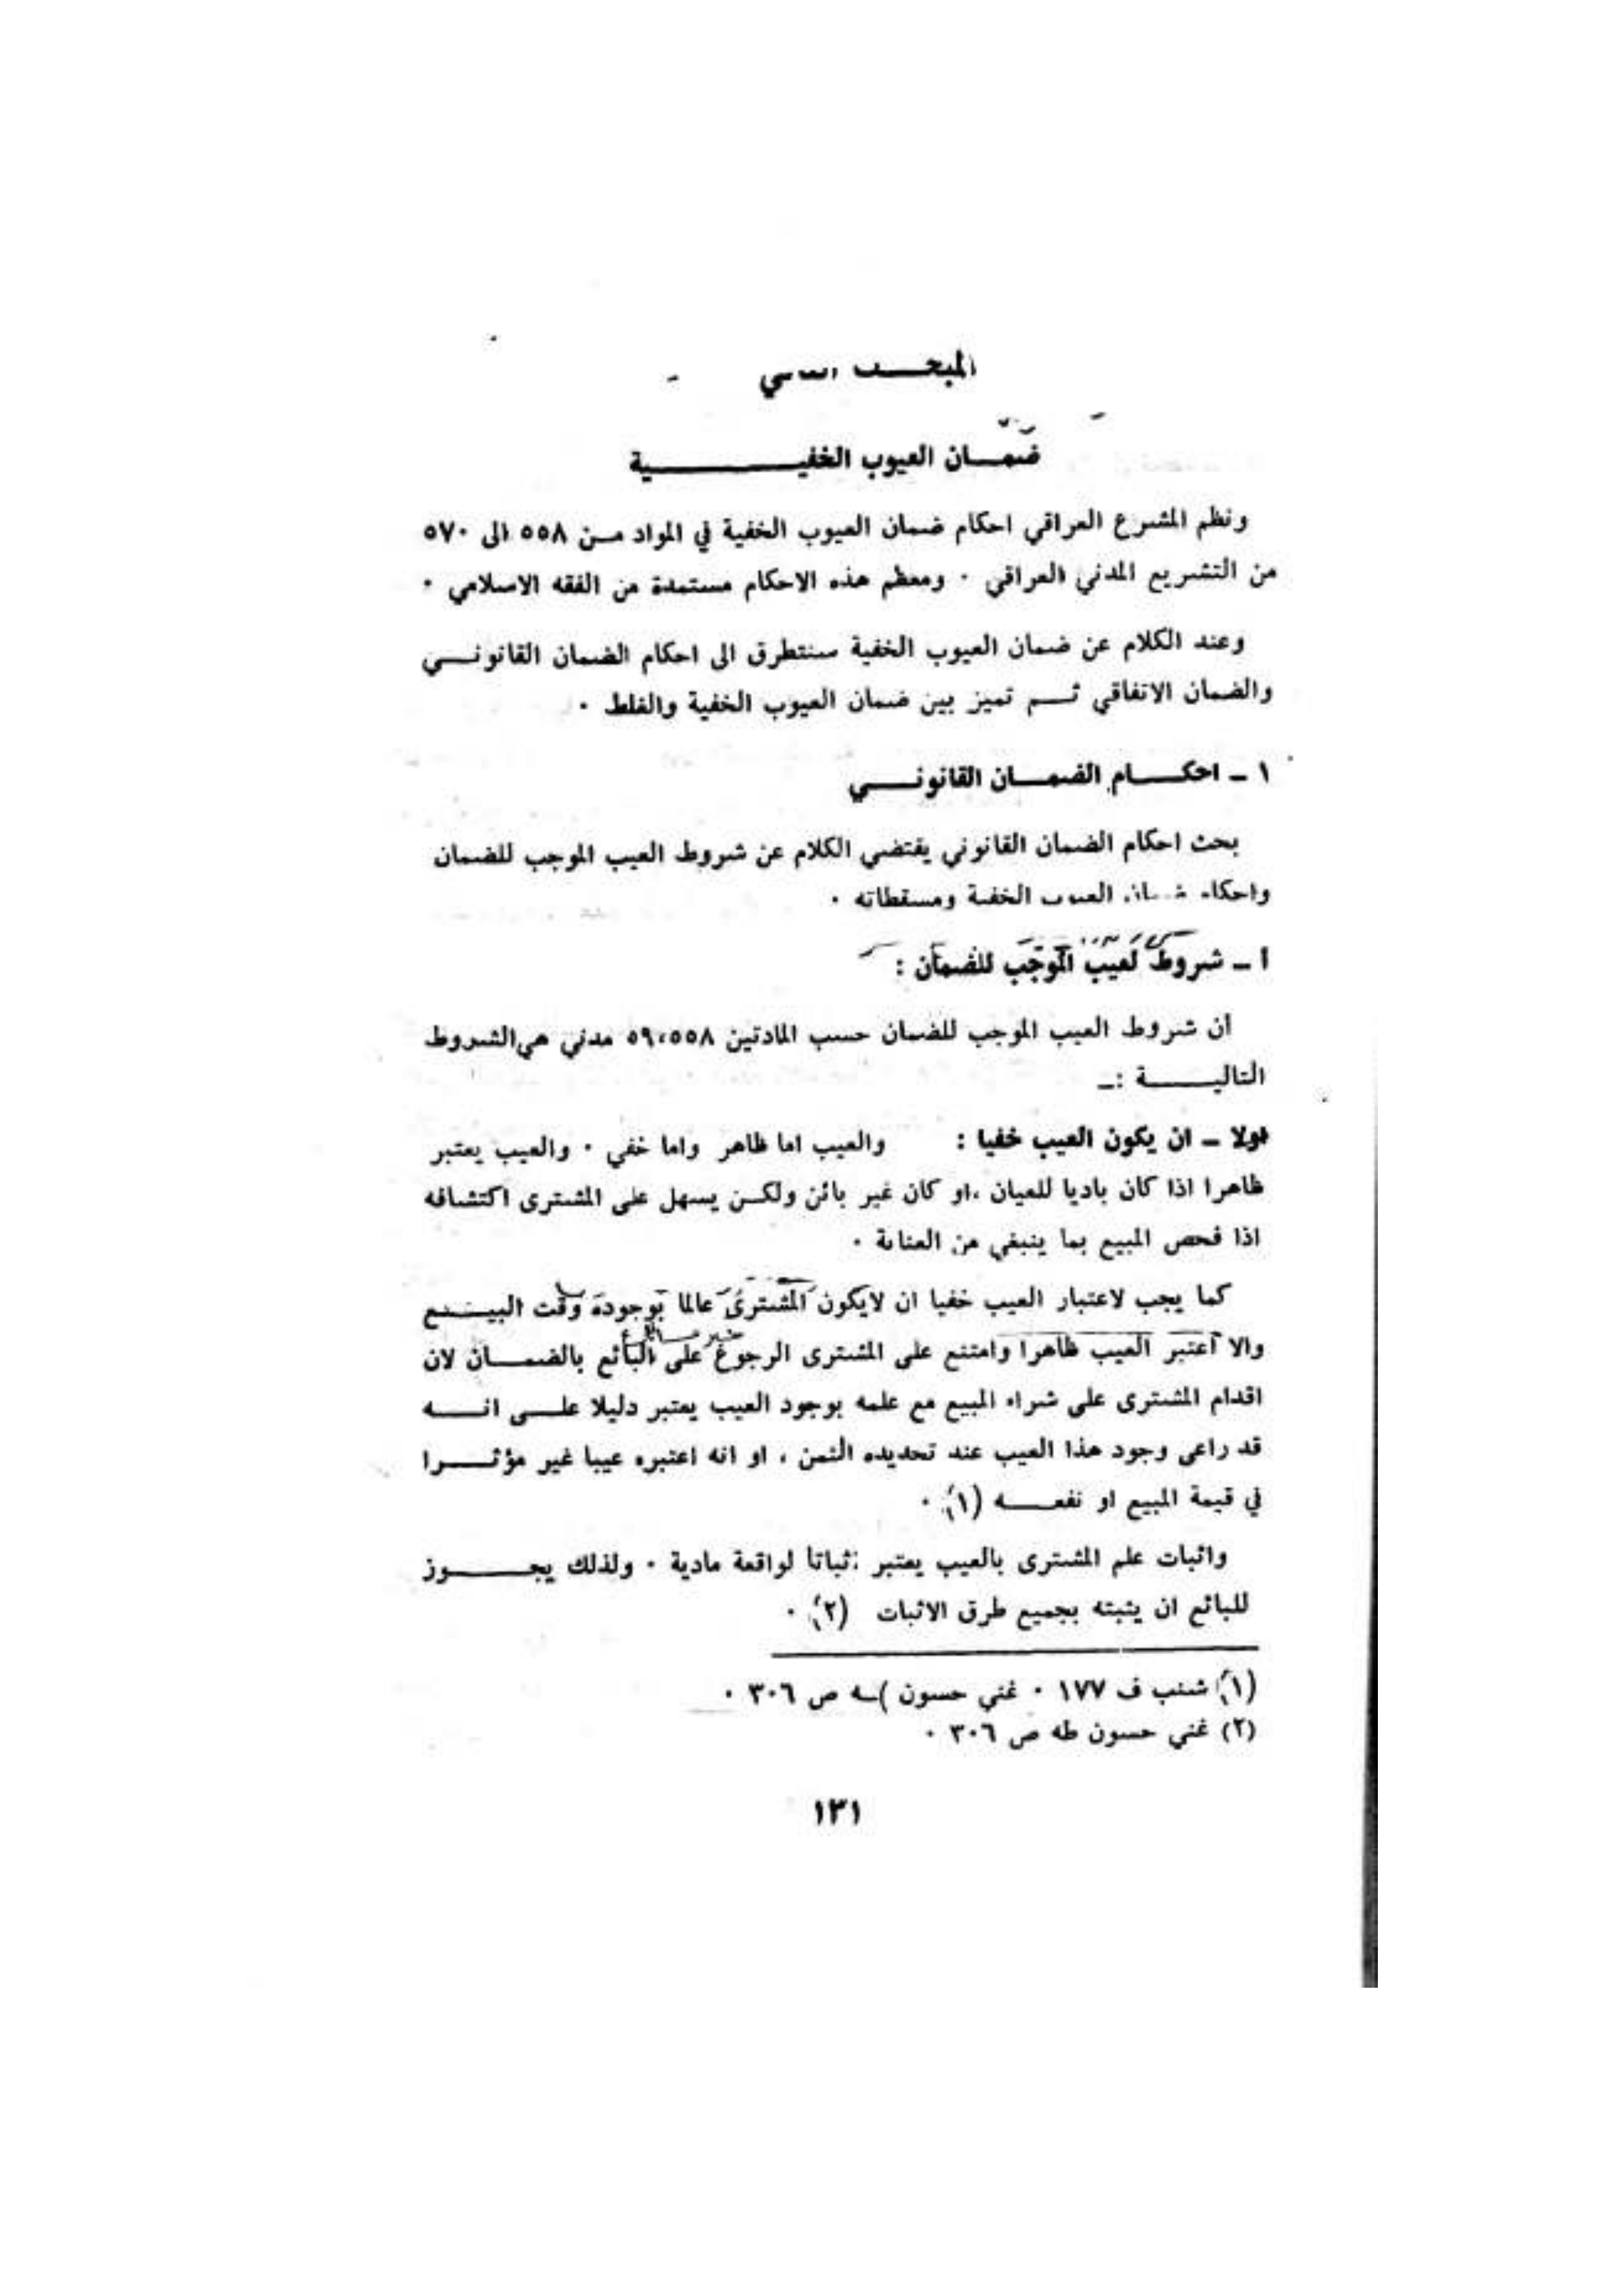 المبحث
ضمان العيوب الخفية
ونظم المشرع العراقي احكام ضمان العيوب الخفية في المواد من ٥٥٨ الى ٥٧٠
من التشريع المدني العراقي ٠ ومعظم هذه الاحكام مستمدة من الفقه الاسلامي ٠
وعند الكلام عن ضمان العيوب الخفية سنتطرق الى احكام الضمان القانوني
والضمان الاتفاقي ثم تميز بين ضمان العيوب الخفية والغلط ٠
١ ـ احكام الضمان القانوني
بحث احكام الضمان القانوني يقتضي الكلام عن شروط العيب الموجب للضمان
واحكام ضمان العيوب الخفية ومسقطاته ٠
أ ـ شروط لعيب الموجب للضمان :
أن شروط العيب الموجب للضمان حسب المادتين ٥٩،٥٥٨ مدني هي الشروط
التالية :ـ
اولا ـ ان يكون العيب خفيا : والعيب اما ظاهر واما خفي ٠ والعيب يعتبر
ظاهرا اذا كان باديا للعيان ،او كان غير بائن ولكن يسهل على المشترى اكتشافه
اذا فحص المبيع بما ينبغي من العناية ٠
كما يجب لاعتبار العيب خفيا ان لايكون المشترى عالما بوجوده وقت البيع
والا اعتبر العيب ظاهرا وامتنع على المشترى الرجوع على البائع بالضمان لان
اقدام المشترى على شراء المبيع مع علمه بوجود العيب يعتبر دليلا على انه
قد راعى وجود هذا العيب عند تحديده الثمن ، او انه اعتبره عيبا غير مؤثرا
في قيمة المبيع او نفعه (١) ٠
واثبات علم المشترى بالعيب يعتبر اثباتا لواقعة مادية ٠ ولذلك يجوز
للبائع ان يثبته بجميع طرق الاثبات (٢) ٠
(١) شنب ف ١٧٧ ٠ غني حسون ص ٣٠٦ ٠
(٢) غني حسون طه ص ٣٠٦ ٠
١٣١